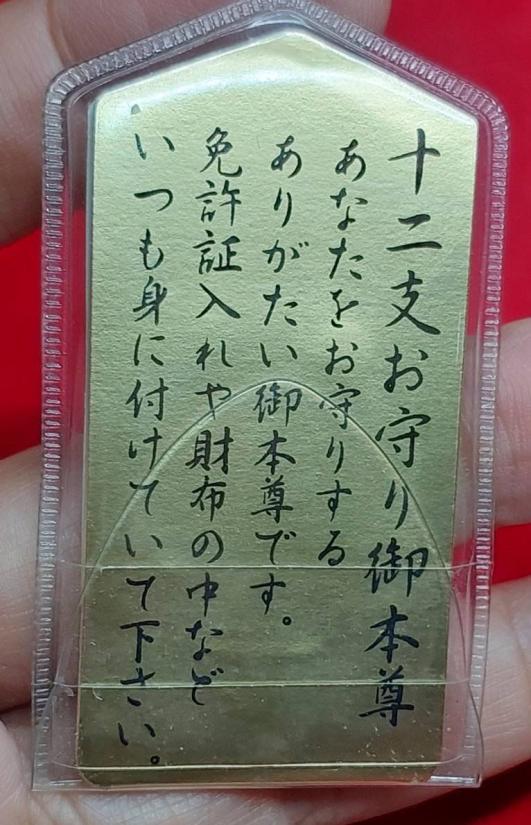 十二支お守り御本尊
あなたをお守りする
ありがたい御本尊です。
免許証入れや財布の中など
いつも身に付けていて下さい。